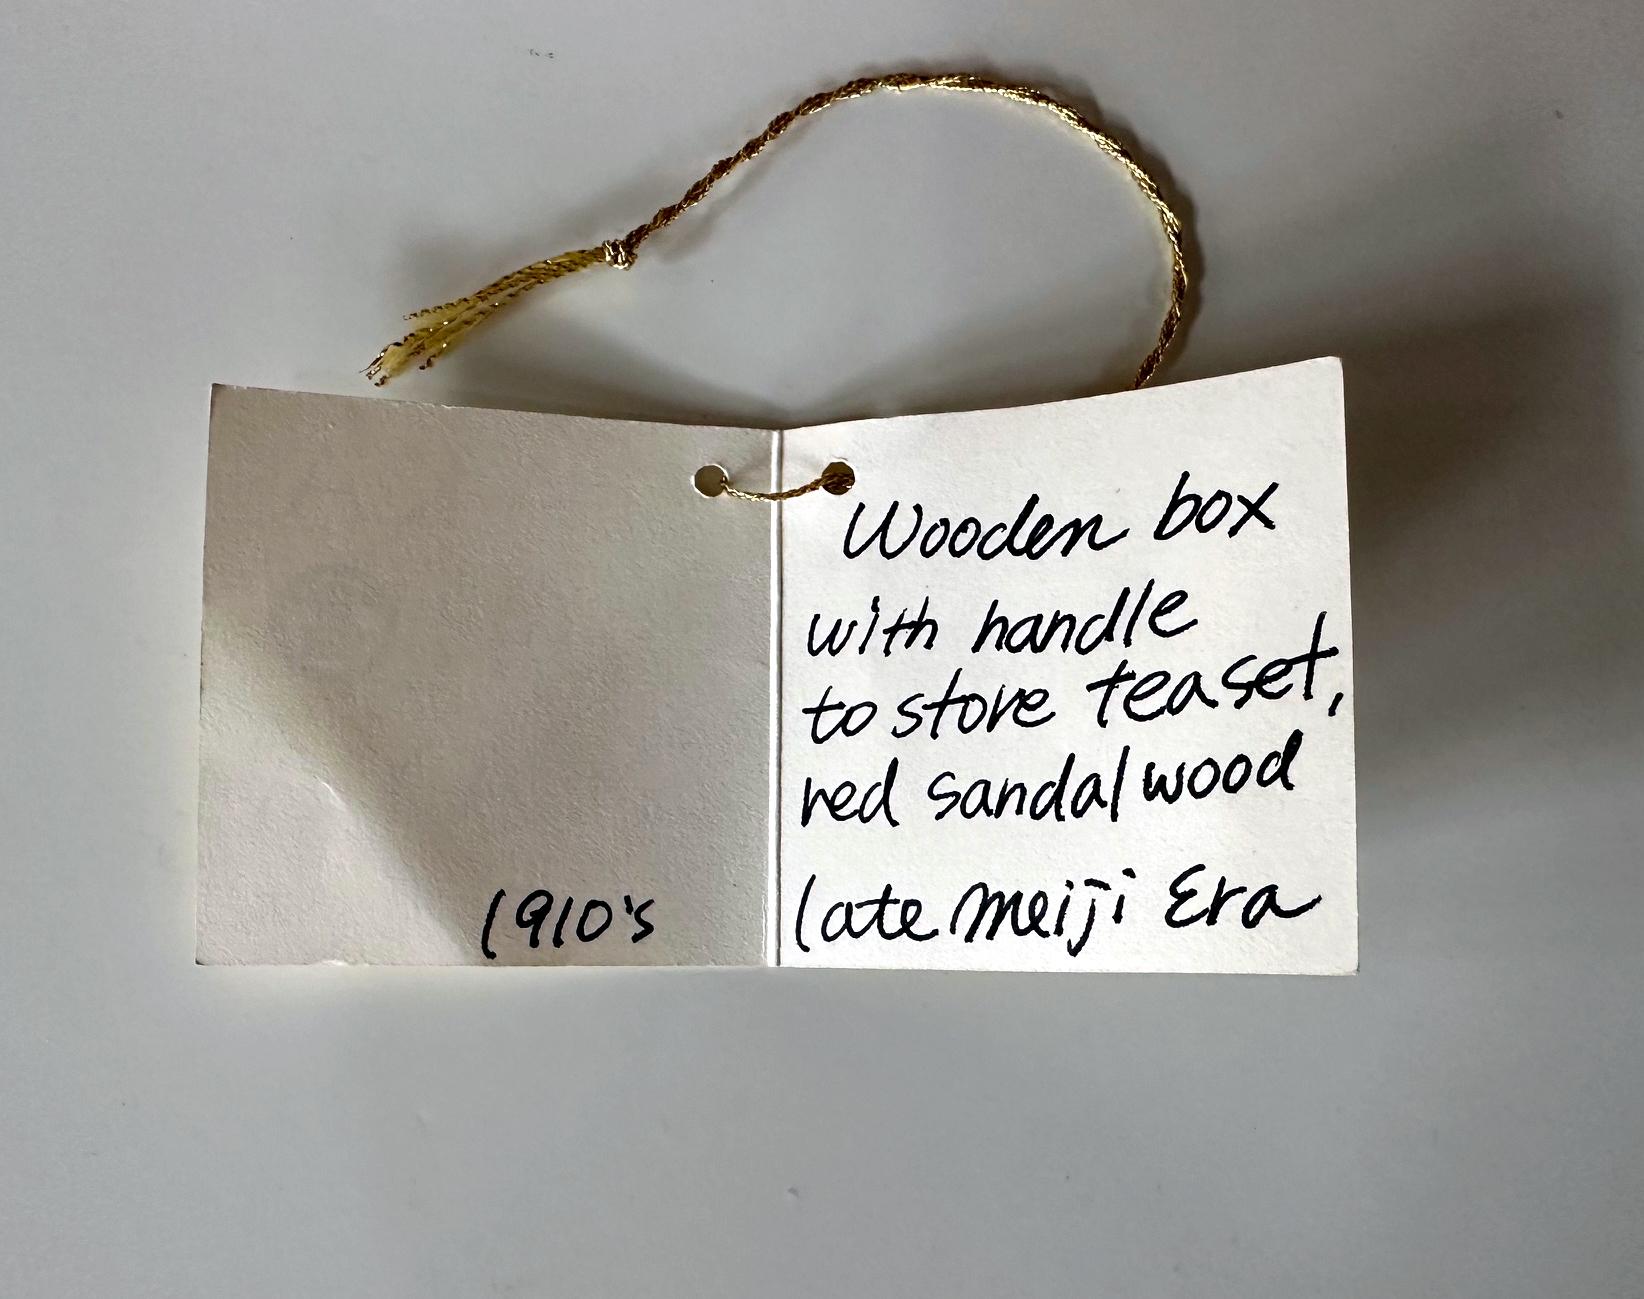 Wooden box
with handle
to store teaset,
red sandalwood
late Meiji Era
1910's